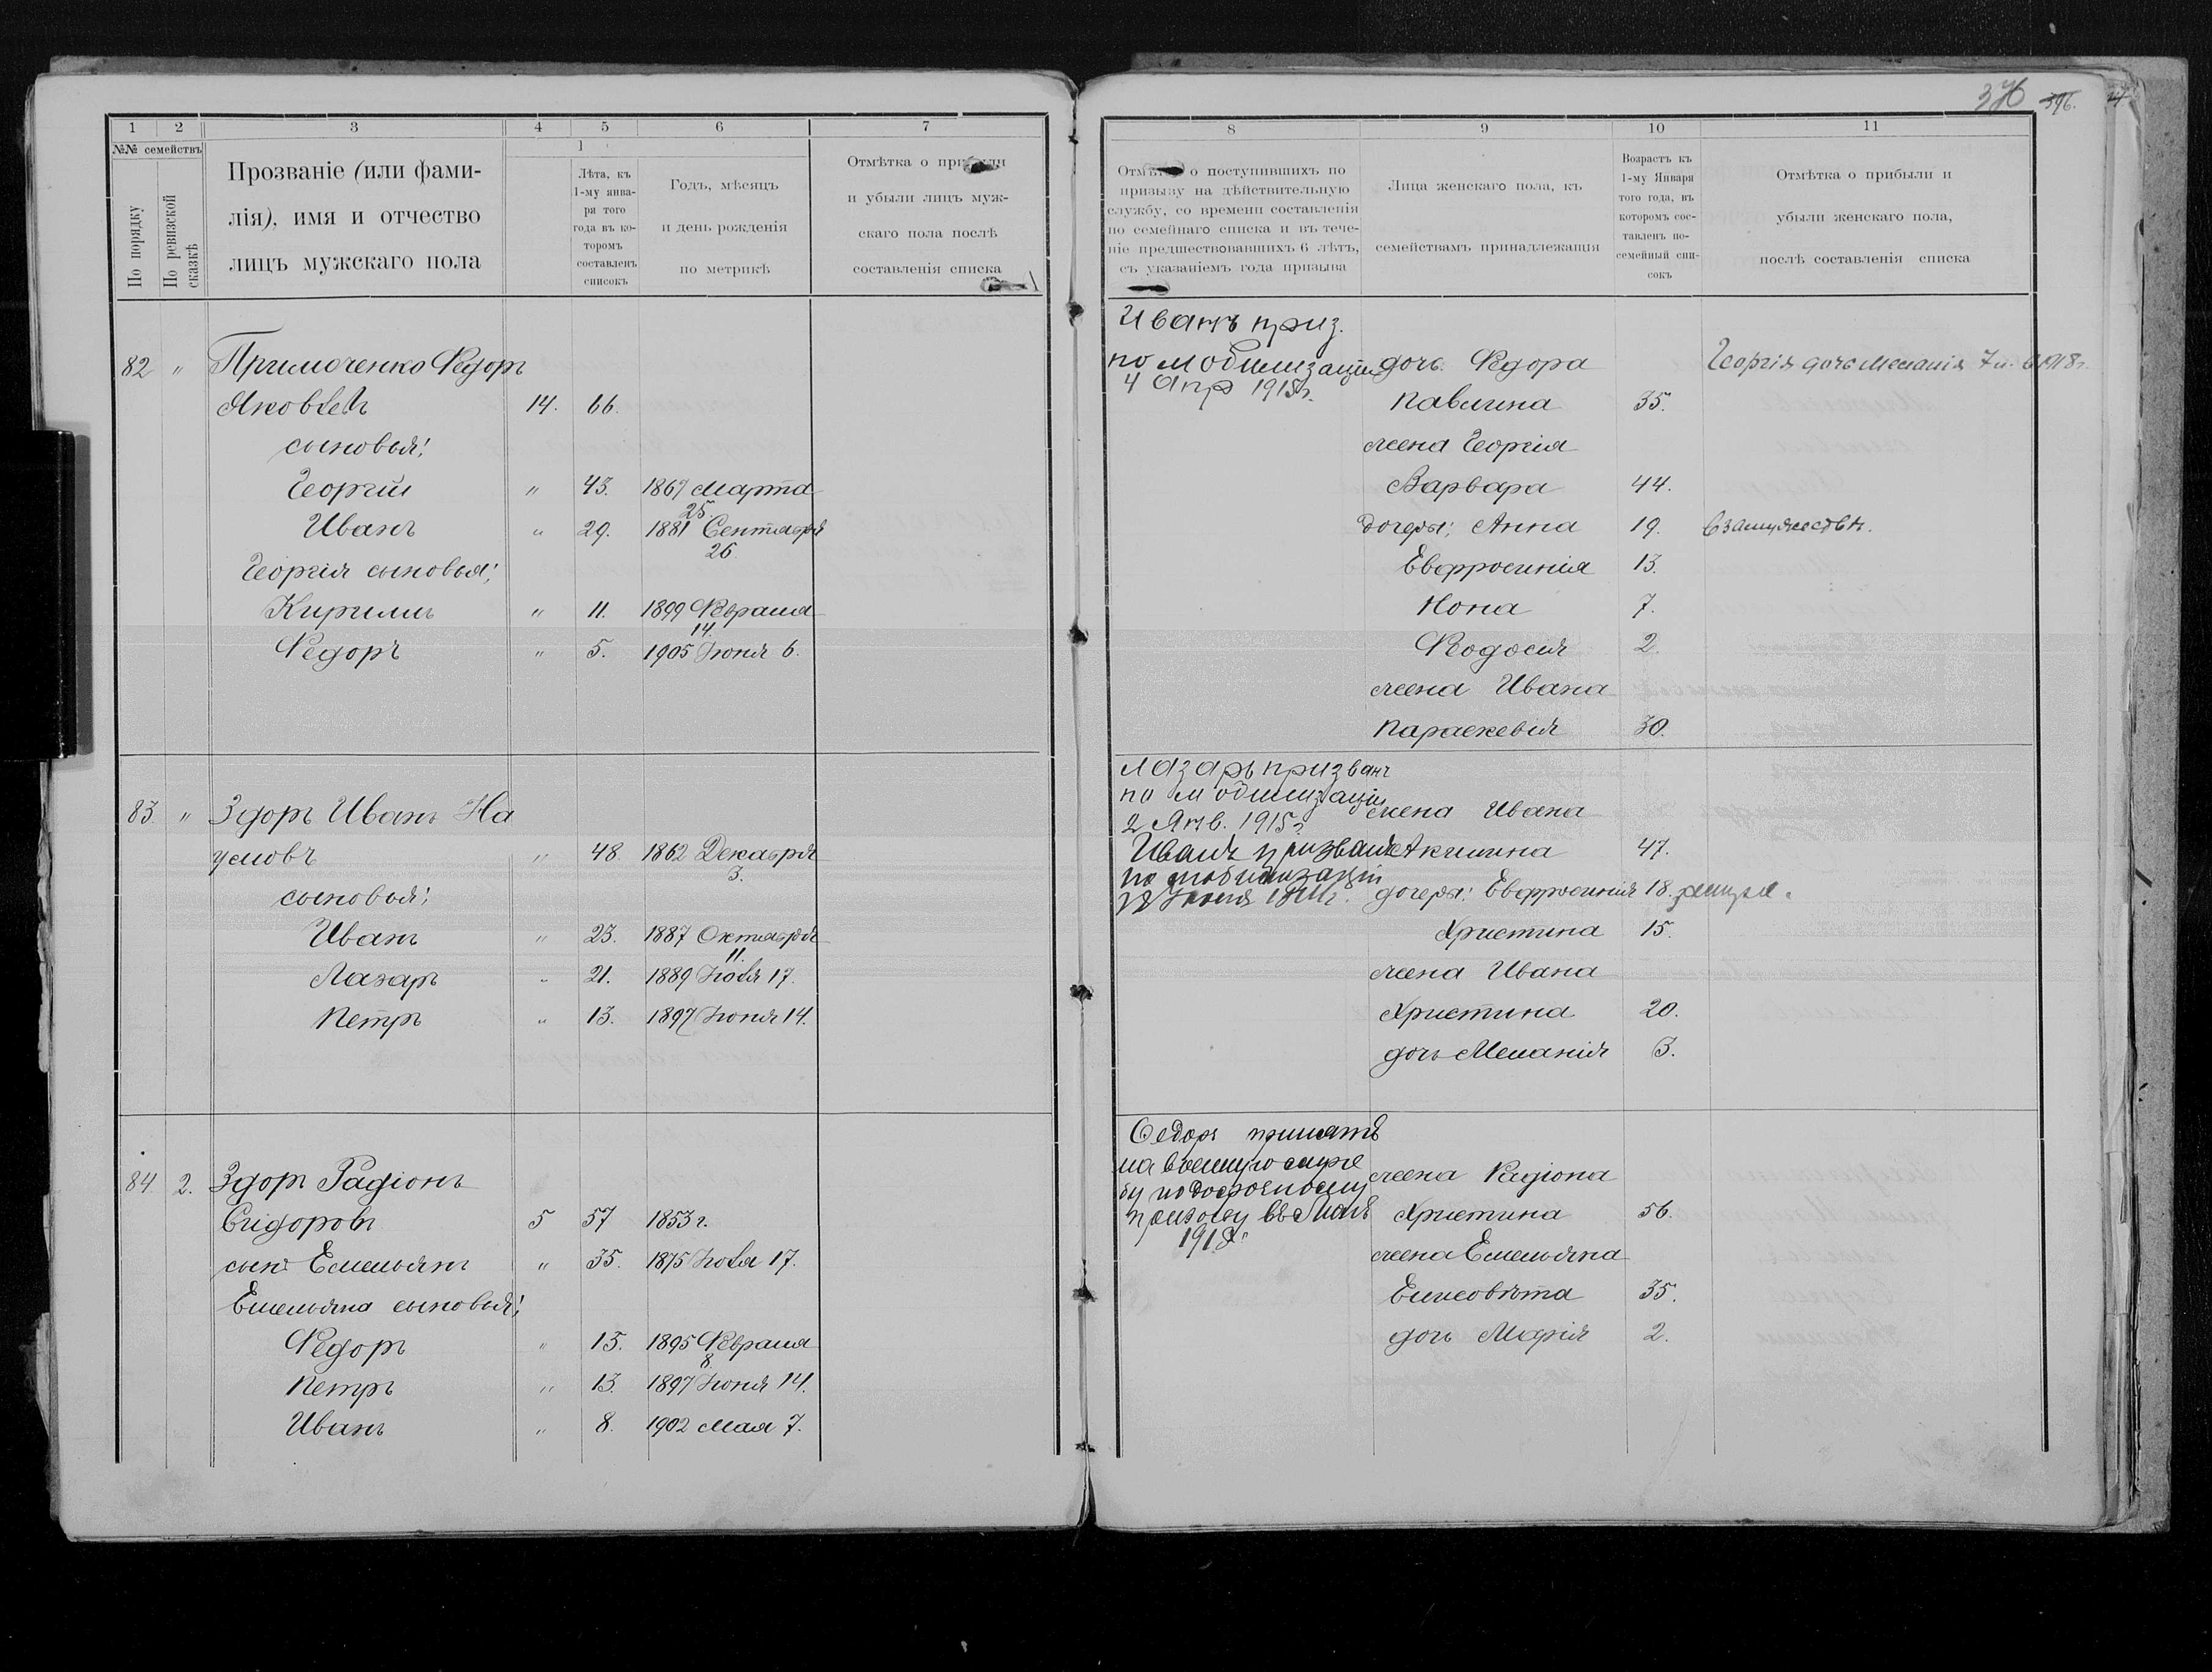 376 376.
1 2 3 4 5 6 7
№№ семействъ
По порядку
По ревизской сказкѣ
Прозваніе (или фами-
лія), имя и отчество
лицъ мужскаго пола
1
Лѣта, къ
1-му янва-
ря того
года въ ко-
торомъ
составленъ
списокъ
Годъ, мѣсяцъ
и день рожденія
по метрикѣ
Отмѣтка о прибыли
и убыли лицъ муж-
скаго пола послѣ
составленія списка
82 " Примоченко Федоръ
Яковлев 14. 66.
сыновья:
Георгій " 43. 1867 Марта
25.
Иванъ " 29. 1881 Сентября
26
Георгія сыновья:
Кирилъ " 11. 1899 Февраля
14.
Федоръ " 5. 1905 Іюня 6.
83 " Здоръ Иванъ На
умовъ " 48. 1862 Декабря
3.
сыновья:
Иванъ " 23. 1887 Октября
11.
Лазаръ " 21. 1889 Іюля 17.
Петръ " 13. 1897 Іюня 14.
84 2. Здоръ Радіонъ
Сидоровъ 5 57 1853 г.
сынъ Емельянъ " 35. 1875 Іюля 17.
Емельяна сыновья:
Федоръ " 15. 1895 Февраля
8.
Петръ " 13. 1897 Іюня 14.
Иванъ " 8. 1902 Мая 7.
8 9 10 11
о поступившихъ по
призыву на дѣйствительную
службу, со времени составленія
по семейнаго списка и въ тече-
ніе предшествовавшихъ 6 лѣтъ,
съ указаніемъ года призыва
Лица женскаго пола, къ
семействамъ принадлежащія
Возрастъ къ
1-му Января
того года, въ
которомъ сос-
тавленъ по-
семейный спи-
сокъ
Отмѣтка о прибыли и
убыли женскаго пола,
послѣ составленія списка
Иванъ приз.
по мобилизаціи
4 Апр 1915г.
дочь Федора
Павлина 35.
жена Георгія
Варвара 44.
дочеры: Анна 19. взамужествѣ.
Евфросинія 13.
Нона 7.
Феодосія 2.
жена Ивана
Параскевія 30.
Георгія дочь Меланія 1918г.
Лазарь призванъ
по мобилизаціи
2 Янв. 1915г
Иванъ призванъ
по мобилизаціи
жена Ивана
Акилина 47.
дочеры: Евфросинія 18. замуж.
Христина 15.
жена Ивана
Христина 20.
дочь Меланія 3.
Федоръ принятъ
на военную служ
бу по досрочному
призыву въ Маѣ
191
жена Радіона
Христина 56.
жена Емельяна
Елисовѣта 35.
дочь Марія 2.